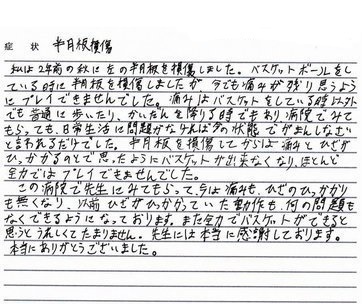 症 状 半月板損傷
私は2年前の秋に左の半月板を損傷しました。バスケットボールをし
ている時に半月板を損傷しましたが今でも痛みが残り思うよう
にプレイできませんでした。痛みはバスケットをしている時以外
でも普通に歩いたり、かいだんを降りる時でもあり病院でみて
もらっても、日常生活に問題がなければ今の状態でがまんしなさい
と言われるだけでした。半月板を損傷してからは痛みとひざが
ひっかかるのとで思ったようにバスケットが出来なくなり、ほとんど
全力ではプレイできませんでした。
この病院で先生にみてもらって、今は痛みも、ひざのひっかかり
も無くなり、以前ひざがひっかかっていた動作も、何の問題も
なくできるようになっております。また全力でバスケットができると
思うとうれしくてたまりません。先生には本当に感謝しております。
本当にありがとうございました。